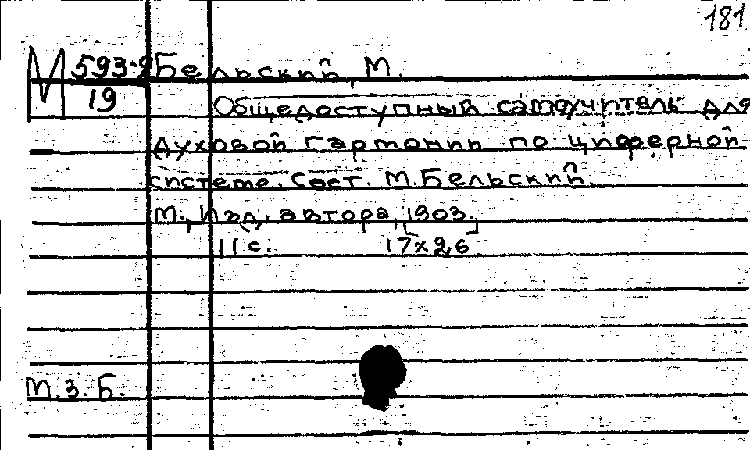 181
М 593-2 Бельский, М.
19
Общедоступный самоучитель для
духовой гармонии по циферной
системе. Сост. М. Бельский.
М., Изд. автора, 1903.
11 с. 17х26
М.З.Б.